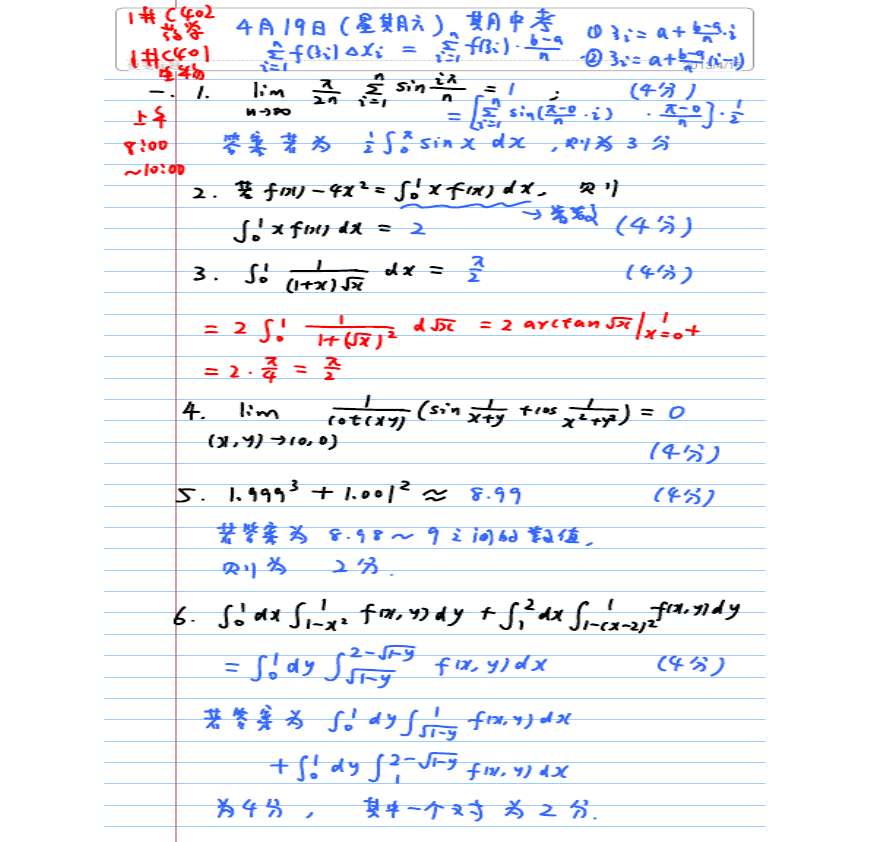 1#C402
药学
1#C401
生物
上午
8:00
~10:00
4月19日(星期六) 期中考 ① ξi = a + (b-a)/n · i
∑_{i=1}^{n} f(ξi)Δxi = ∑_{i=1}^{n} f(ξi)·(b-a)/n ② ξi = a + (b-a)/n (i-1)
一. 1. lim_{n→∞} π/2n ∑_{i=1}^{n} sin iπ/n = 1 ; (4分)
= [∑_{i=1}^{n} sin((π-0)/n · i) · (π-0)/n] · 1/2
答案若为 1/2 ∫_0^π sin x dx, 则为3分
2. 若 f(x) - 4x² = ∫_0^1 x f(x) dx, 则
→ 常数
∫_0^1 x f(x) dx = 2 (4分)
3. ∫_0^1 1/((1+x)√x) dx = π/2 (4分)
= 2 ∫_0^1 1/(1+(√x)²) d√x = 2 arctan √x |_{x=0+}^{1}
= 2 · π/4 = π/2
4. lim_{(x,y)→(0,0)} 1/cot(xy) (sin 1/(x+y) + cos 1/(x²+y²)) = 0
(4分)
5. 1.999³ + 1.001² ≈ 8.99 (4分)
若答案为 8.98 ~ 9 之间的数值,
则为 2分.
6. ∫_0^1 dx ∫_{1-x²}^1 f(x,y) dy + ∫_1^2 dx ∫_{1-(x-2)²}^1 f(x,y) dy
= ∫_0^1 dy ∫_{√(1-y)}^{2-√(1-y)} f(x,y) dx (4分)
若答案为 ∫_0^1 dy ∫_{√(1-y)}^1 f(x,y) dx
+ ∫_0^1 dy ∫_1^{2-√(1-y)} f(x,y) dx
为4分, 其中一个对为2分.